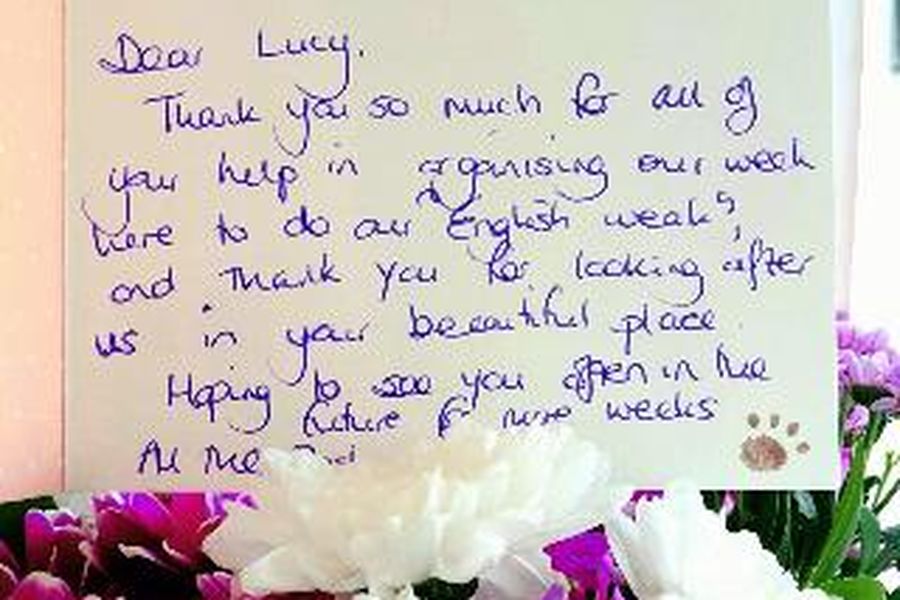 Dear Lucy.
Thank you so much for all of
your help in organising our week
here to do our English weeks,
and Thank you for looking after
us in your beeautiful place.
Hoping to see you often in the
future for more weeks
All the